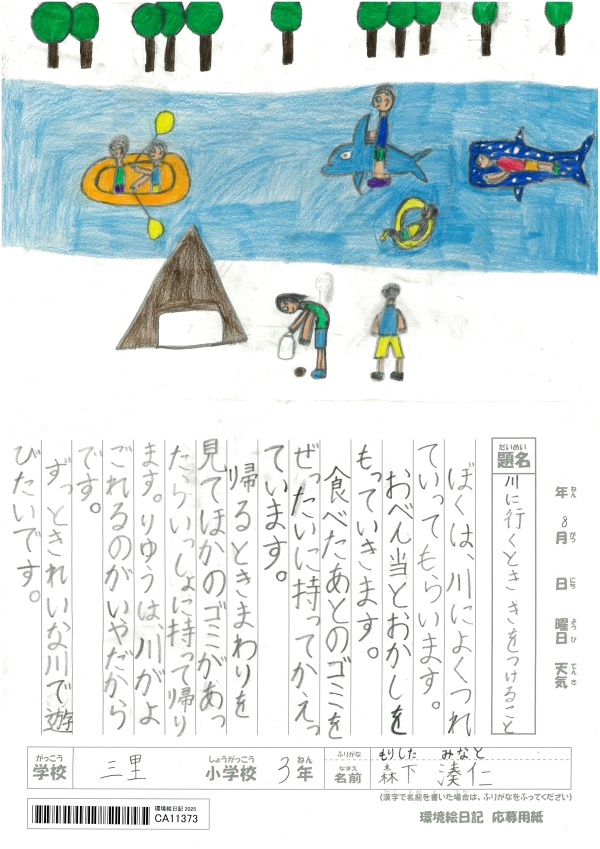 題名
だいめい
川に行くとききをつけること
年 8月 日 曜日 天気
ねん がつ にち ようび てんき
ぼくは、川によくつれ
ていってもらいます。
おべん当とおかしを
もっていきます。
食べたあとのゴミを
ぜったいに持ってかえっ
ています。
帰るときまわりを
見てほかのゴミがあっ
たらいっしょに持って帰り
ます。りゆうは、川がよ
ごれるのがいやだから
です。
ずっときれいな川で遊
びたいです。
がっこう しょうがっこう ねん
学校 三里 小学校 3年
ふりがな もりした みなと
なまえ
名前 森下 湊仁
(漢字で名前を書いた場合は、ふりがなをふってください)
環境絵日記 2025
CA11373
環境絵日記 応募用紙